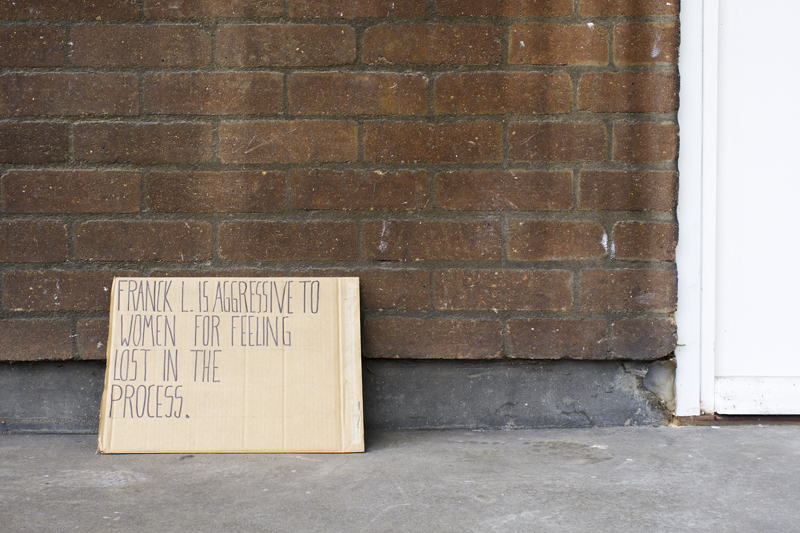 FRANCK L. IS AGGRESSIVE TO
WOMEN FOR FEELING
LOST IN THE
PROCESS.